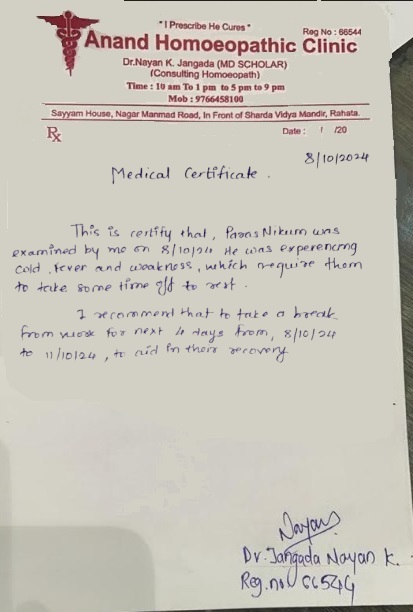 " I Prescribe He Cures "
Reg No : 66544
Anand Homoeopathic Clinic
Dr.Nayan K. Jangada (MD SCHOLAR)
(Consulting Homoeopath)
Time : 10 am To 1 pm to 5 pm to 9 pm
Mob : 9766458100
Sayyam House, Nagar Manmad Road, In Front of Sharda Vidya Mandir, Rahata.
Rx
Date : / /20
8/10/2024
Medical Certificate.
This is certify that, Paras Nikum was
examined by me on 8/10/24 He was experencing
cold, fever and weakness, which require them
to take some time off to rest.
I recommend that to take a break
from work for next 4 days from, 8/10/24
to 11/10/24, to aid in their recovery
Nayan
Dr. Jangada Nayan K.
Reg.no 66544